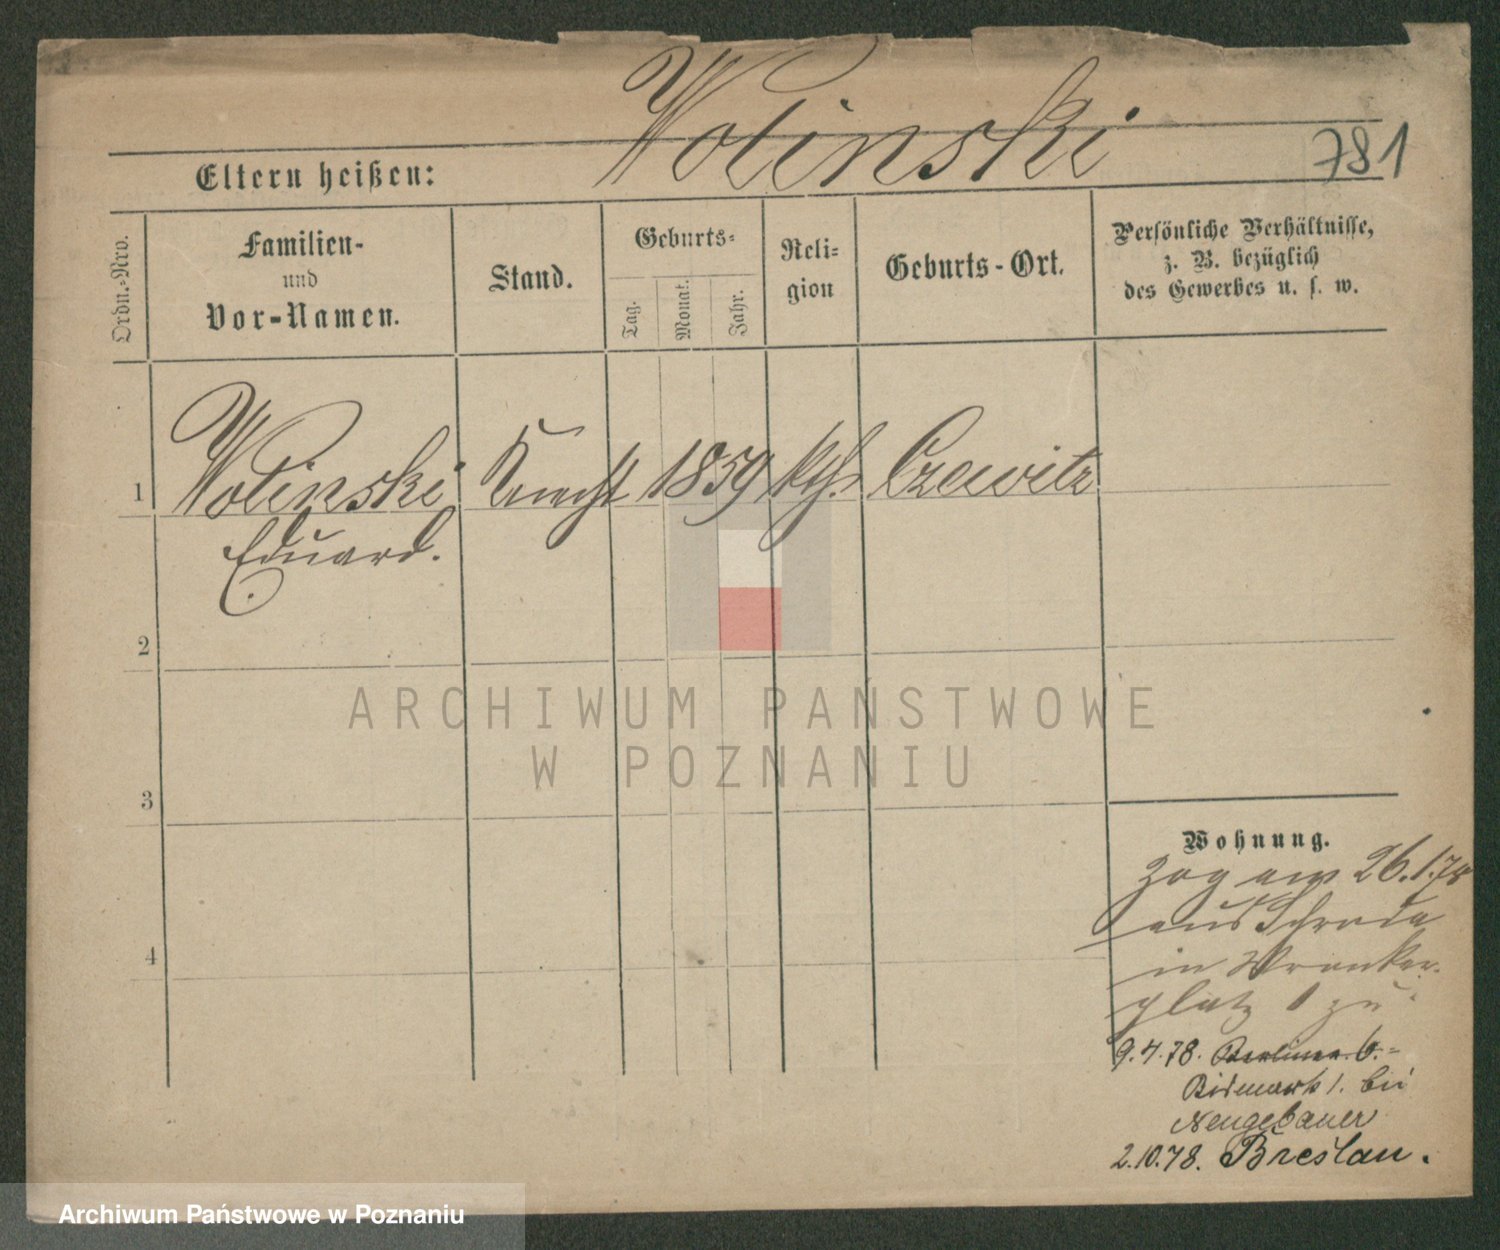 Wolinski
781
Eltern heißen:
Ordn.-Nro.
Familien-
und
Vor-Namen.
Stand.
Geburts-
Tag.
Monat.
Jahr.
Reli-
gion
Geburts-Ort.
Persönliche Verhältnisse,
z. B. bezüglich
des Gewerbes u. s. w.
1
Wolinski Knecht 1859 kth. Czewitz
Eduard.
2
3
4
Wohnung.
Zog am 26.1.78
aus Schroda
in Wronker-
platz 1 zu
9.4.78. Berliner 6.-
Bismark 1. bei
Neugebauer
2.10.78. Breslau.
ARCHIWUM PAŃSTWOWE
W POZNANIU
Archiwum Państwowe w Poznaniu